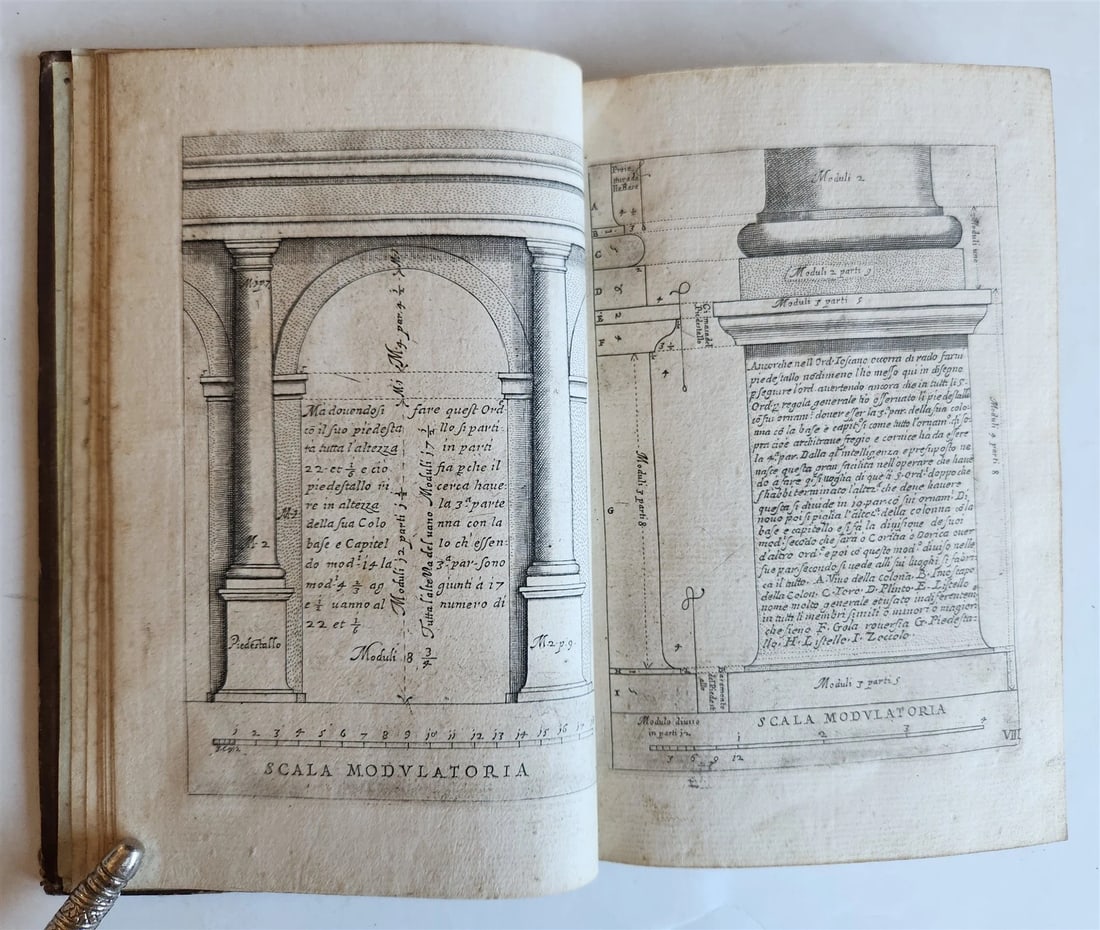 M 2 p 7
M 4 par. 4 1/2
M 1
Ma douendosi fare quest Ord
cō il suo piedesta llo si parti
ra tutta l'altezza in parti
22 et 1/6 e cio fia pche il
piedestallo in cerca haue
re in altezza la 3.ª parte
della sua Colo nna con la
base e Capitel lo ch' essen:
do mod.i 14 la 3.ª par. sono
mod.i 4 2/3 ag giunti à 17
e 1/2 uanno al numero di
22 et 1/6
Moduli j2 parti
Tutta l'altezza del uano Moduli j7 1/2
M. 3
M. 2
Piedestallo
M 2 p. 9
Moduli 8 3/4
1 2 3 4 5 6 7 8 9 j0 j1 12 13 14 15 16 17
SCALA MODVLATORIA
Moduli 2
A
B
C
D
E
F
G
H
I
Moduli uno
Moduli 2 parti 9
Moduli 3 parti 5
Cimasa del Piedestallo
Moduli 3 parti 8
Moduli 4 parti 8
Ancorche nell Ord. Toscano ocorra di rado farui
piedestallo nōdimeno l'ho messo qui in disegno
p seguire l'ord. auertendo ancora che in tutti li 5.
Ord. p regola generale ho osseruato li piedestalli
cō suoi ornam.ti douer esser la 3.ª par. della sua colo
nna cō la base è capit. si come tutto l'ornam.to di so
pra cioè architraue fregio e cornice ha da essere
la 4.ª par. Dalla ql' intelligenza e presuposto ne
nasce questa gran facilita nell operare che haue
do a fare qsi uoglia di questi 5. Ord. doppo che
s'habbi terminato l'altez.ª che deue hauere
questa si diuide in 19. par. cō suoi ornam.ti Di
nouo poi si piglia l'altez.ª della colonna cō la
base e capitello e si fa la diuisione de suoi
mod. secōdo che sara o Corītia ò Dorica ouer
d'altro ord.e e poi cō questo mod.o diuiso nelle
sue par. secondo si uede alli sui luoghi si fabri
ca il tutto. A. Viuo della colona. B. Imoscapo
della Colon. C. Toro. D. Plinto. E. Listello
nome molto generale et usato indiferentem.
in tutti li membri simili ò minori ò magiori
che sieno F. Gola rouersia G. Piedesta:
llo. H. Listello. I. Zoccolo.
Basamento del Piedestallo
Moduli 3 parti 5
Modulo diuiso
in parti j2.
SCALA MODVLATORIA
1 2 3 4
3 6 9 12
VIII